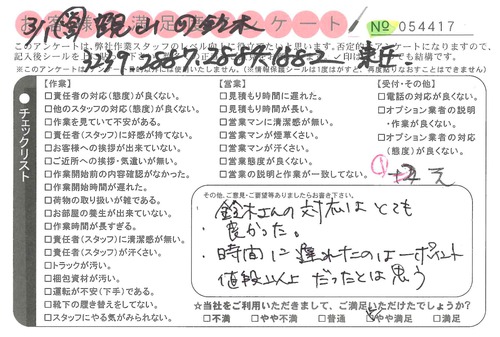 お客様 満足度アンケート № 054417
このアンケートは、弊社作業スタッフのレベル向上に
記入後シールを
チェックリスト
【作業】
□責任者の対応(態度)が良くない。
□他のスタッフの対応(態度)が良くない。
□作業を見ていて不安がある。
□責任者(スタッフ)に好感が持てない。
□お客様への挨拶が出来ていない。
□ご近所への挨拶・気遣いが無い。
□作業開始前の内容確認がなかった。
□作業開始時間が遅れた。
□荷物の取り扱いが雑である。
□お部屋の養生が出来ていない。
□作業時間が長すぎる。
□責任者(スタッフ)に清潔感が無い。
□責任者(スタッフ)が汗くさい。
□トラックが汚い。
□梱包資材が汚い。
□運転が不安(下手)である。
□靴下の履き替えをしてない。
□スタッフにやる気がみられない。
【営業】
□見積もり時間に遅れた。
□見積もり時間が長い。
□営業マンに清潔感が無い。
□営業マンが煙草くさい。
□営業マンが汗くさい。
□営業態度が良くない。
□営業の説明と作業が一致してない。
【受付・その他】
□電話の対応が良くない。
□オプション業者の説明
・作業が良くない。
□オプション業者の対応
(態度)が良くない。
その他、ご意見・ご要望等ありましたらお書き下さい。
・鈴木さんの対応はとても
良かった。
・時間に遅れたのは一ポイント
値段以上だったとは思う
★当社をご利用いただきまして、ご満足いただけたでしょうか?
□不満 □やや不満 □普通 □やや満足 □満足